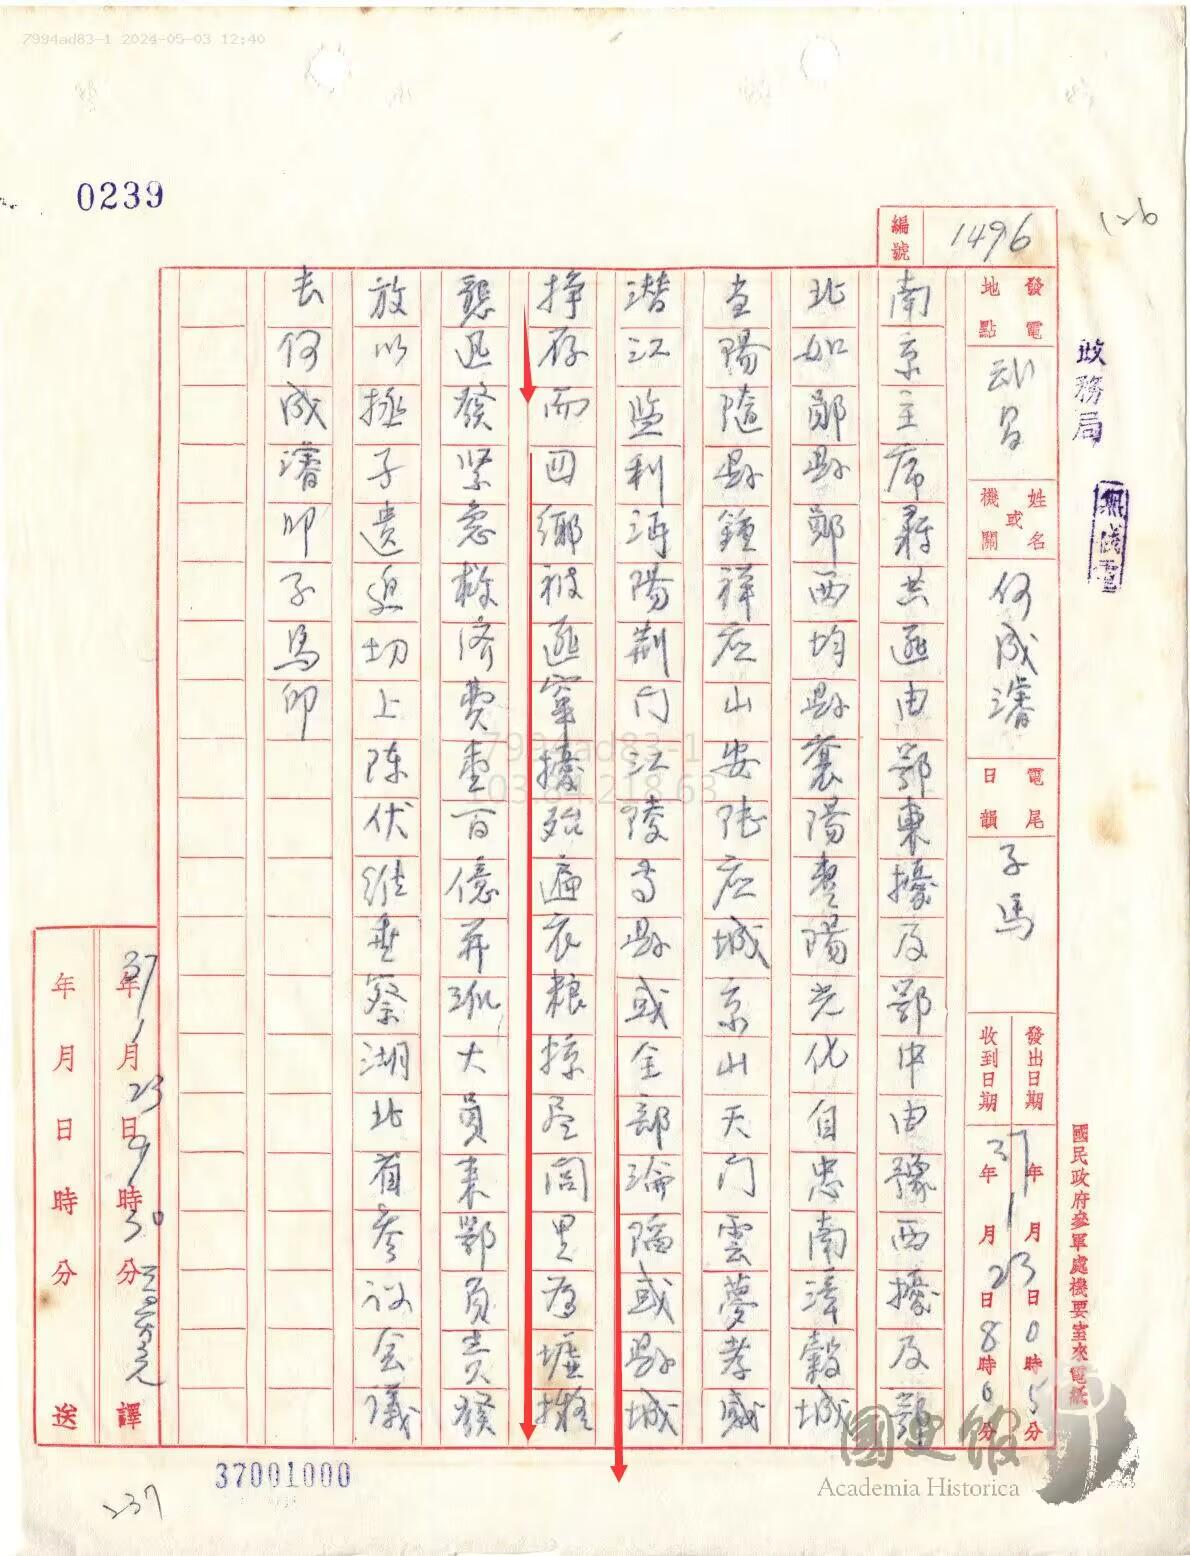 7994ad83-1 2024-05-03 12:40
0239
126
政務局
無線電
編號 1496
發電地點 武昌
姓名或機關 何成濬
電尾日韻 子馬
發出日期 37年1月23日0時5分
收到日期 年 月 日8時0分
國民政府參軍處機要室來電紙
南京主席蔣共匪由鄂東擾及鄂中由豫西擾及鄂
北如鄖縣鄖西均縣襄陽棗陽光化自忠南漳穀城
當陽隨縣鍾祥应山安陸应城京山天门雲夢孝感
潛江监利沔陽荆门江陵等縣或全部淪陷或縣城
掙存而四鄉被匪窜擾殆遍衣粮掠尽閭里为墟擬
懇迅發緊急救济费壹百億并派大員来鄂負责發
放以拯孑遺迫切上陈伏維垂察湖北省参议会議
长何成濬叩子馬叩
37年1月23日9時30分 譯
年月日時分 送
7994ad83-1
103. .218.63
37001000
237
國史館
Academia Historica